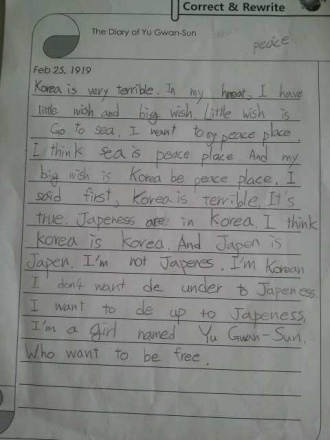 Correct & Rewrite
The Diary of Yu Gwan-Sun
peace
Feb 25, 1919
Korea is very terrible. In my heart, I have
little wish and big wish. Little wish is
Go to sea. I want to go peace place.
I think sea is peace place. And my
big wish is Korea be peace place. I
said first, Korea is terrible. It's
true. Japeness are in Korea. I think
Korea is Korea. And Japen is
Japen. I'm not Japenes. I'm Korean
I don't want de under to Japeness
I want to de up to Japeness,
I'm a girl named Yu Gwan-Sun.
Who want to be free.